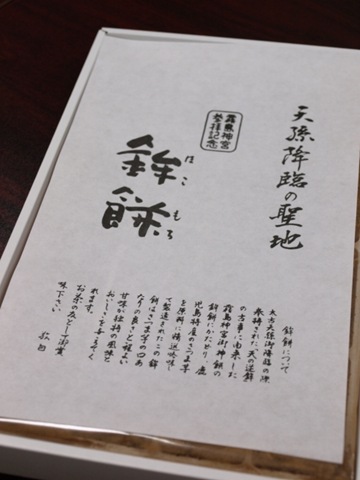 天孫降臨の聖地
霧島神宮
参拝記念
鉾餅
ほこもち
鉾餅について
太古天孫御降臨の際
奉持された天の逆鉾
の古事に由来した
霧島神宮御神餅の
鉾餅にかたどり、鹿
児島特産のさつま芋
を原料に精選吟味し
て製造されたこの鉾
餅はさつま芋の口あ
たりの良さと程よい
甘味が独特の風味と
おいしさをかもしてく
れます。
お茶の友として御賞
味下さい
敬白